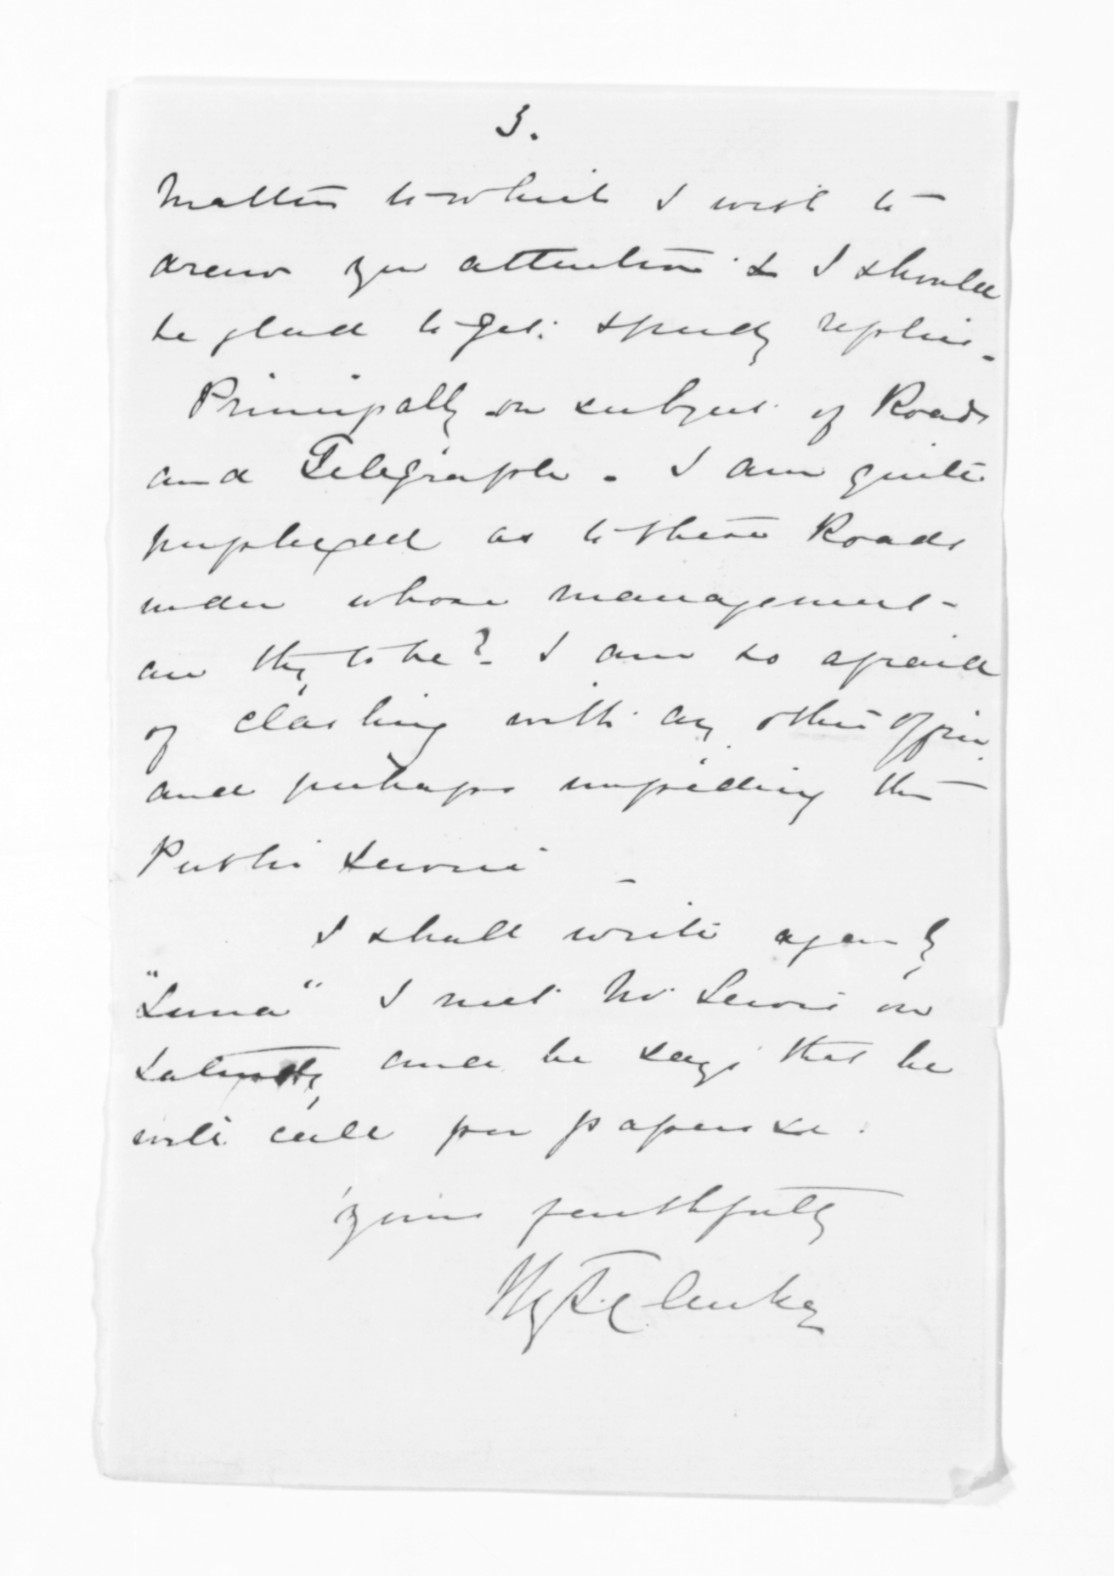 3.
Matters to which I wish to
draw your attention & I should
be glad to get speedy replies.
Principally on subject of Roads
and Telegraph. I am quite
perplexed as to these Roads
under whose management
are they to be? I am so afraid
of clashing with any other officer
and perhaps impeding the
Public Service _
I shall write again by
"Luna" I met Mr Lewis on
Saturday and he says that he
will call for papers &c.
Yours faithfully